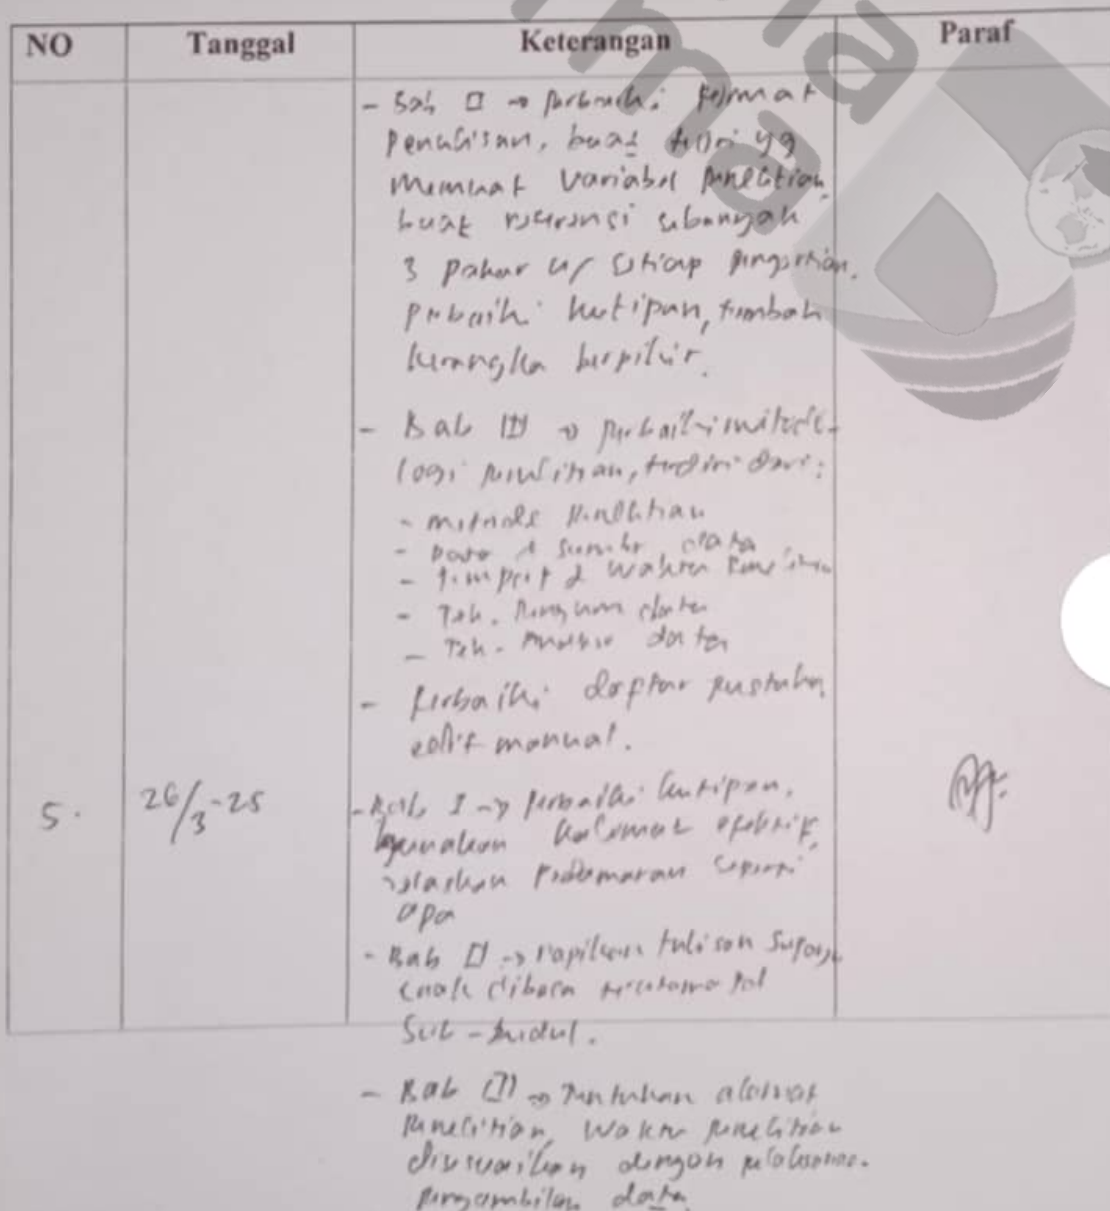 NO Tanggal Keterangan Paraf
- Bab II → perbaiki format
penulisan, buat teori yg
memuat variabel penelitian,
buat referensi sebanyak
3 pakar u/ setiap pengertian.
perbaiki kutipan, tambah
kerangka berpikir.
- Bab III → perbaiki metodo-
logi penelitian, terdiri dari:
- metode penelitian
- Data & sumber data
- tempat & waktu penelitian
- Tek. Pengum data
- Tek. Analisis data
- perbaiki daftar pustaka,
edit manual.
5. 26/3-25 - Bab I → perbaiki kutipan,
gunakan kalimat efektif,
jelaskan seperti
apa
- Bab II → rapikan tulisan supaya
enak dibaca terutama
sub-judul.
- Bab III → Tentukan alamat
penelitian, waktu penelitian
disesuaikan dengan
pengambilan data